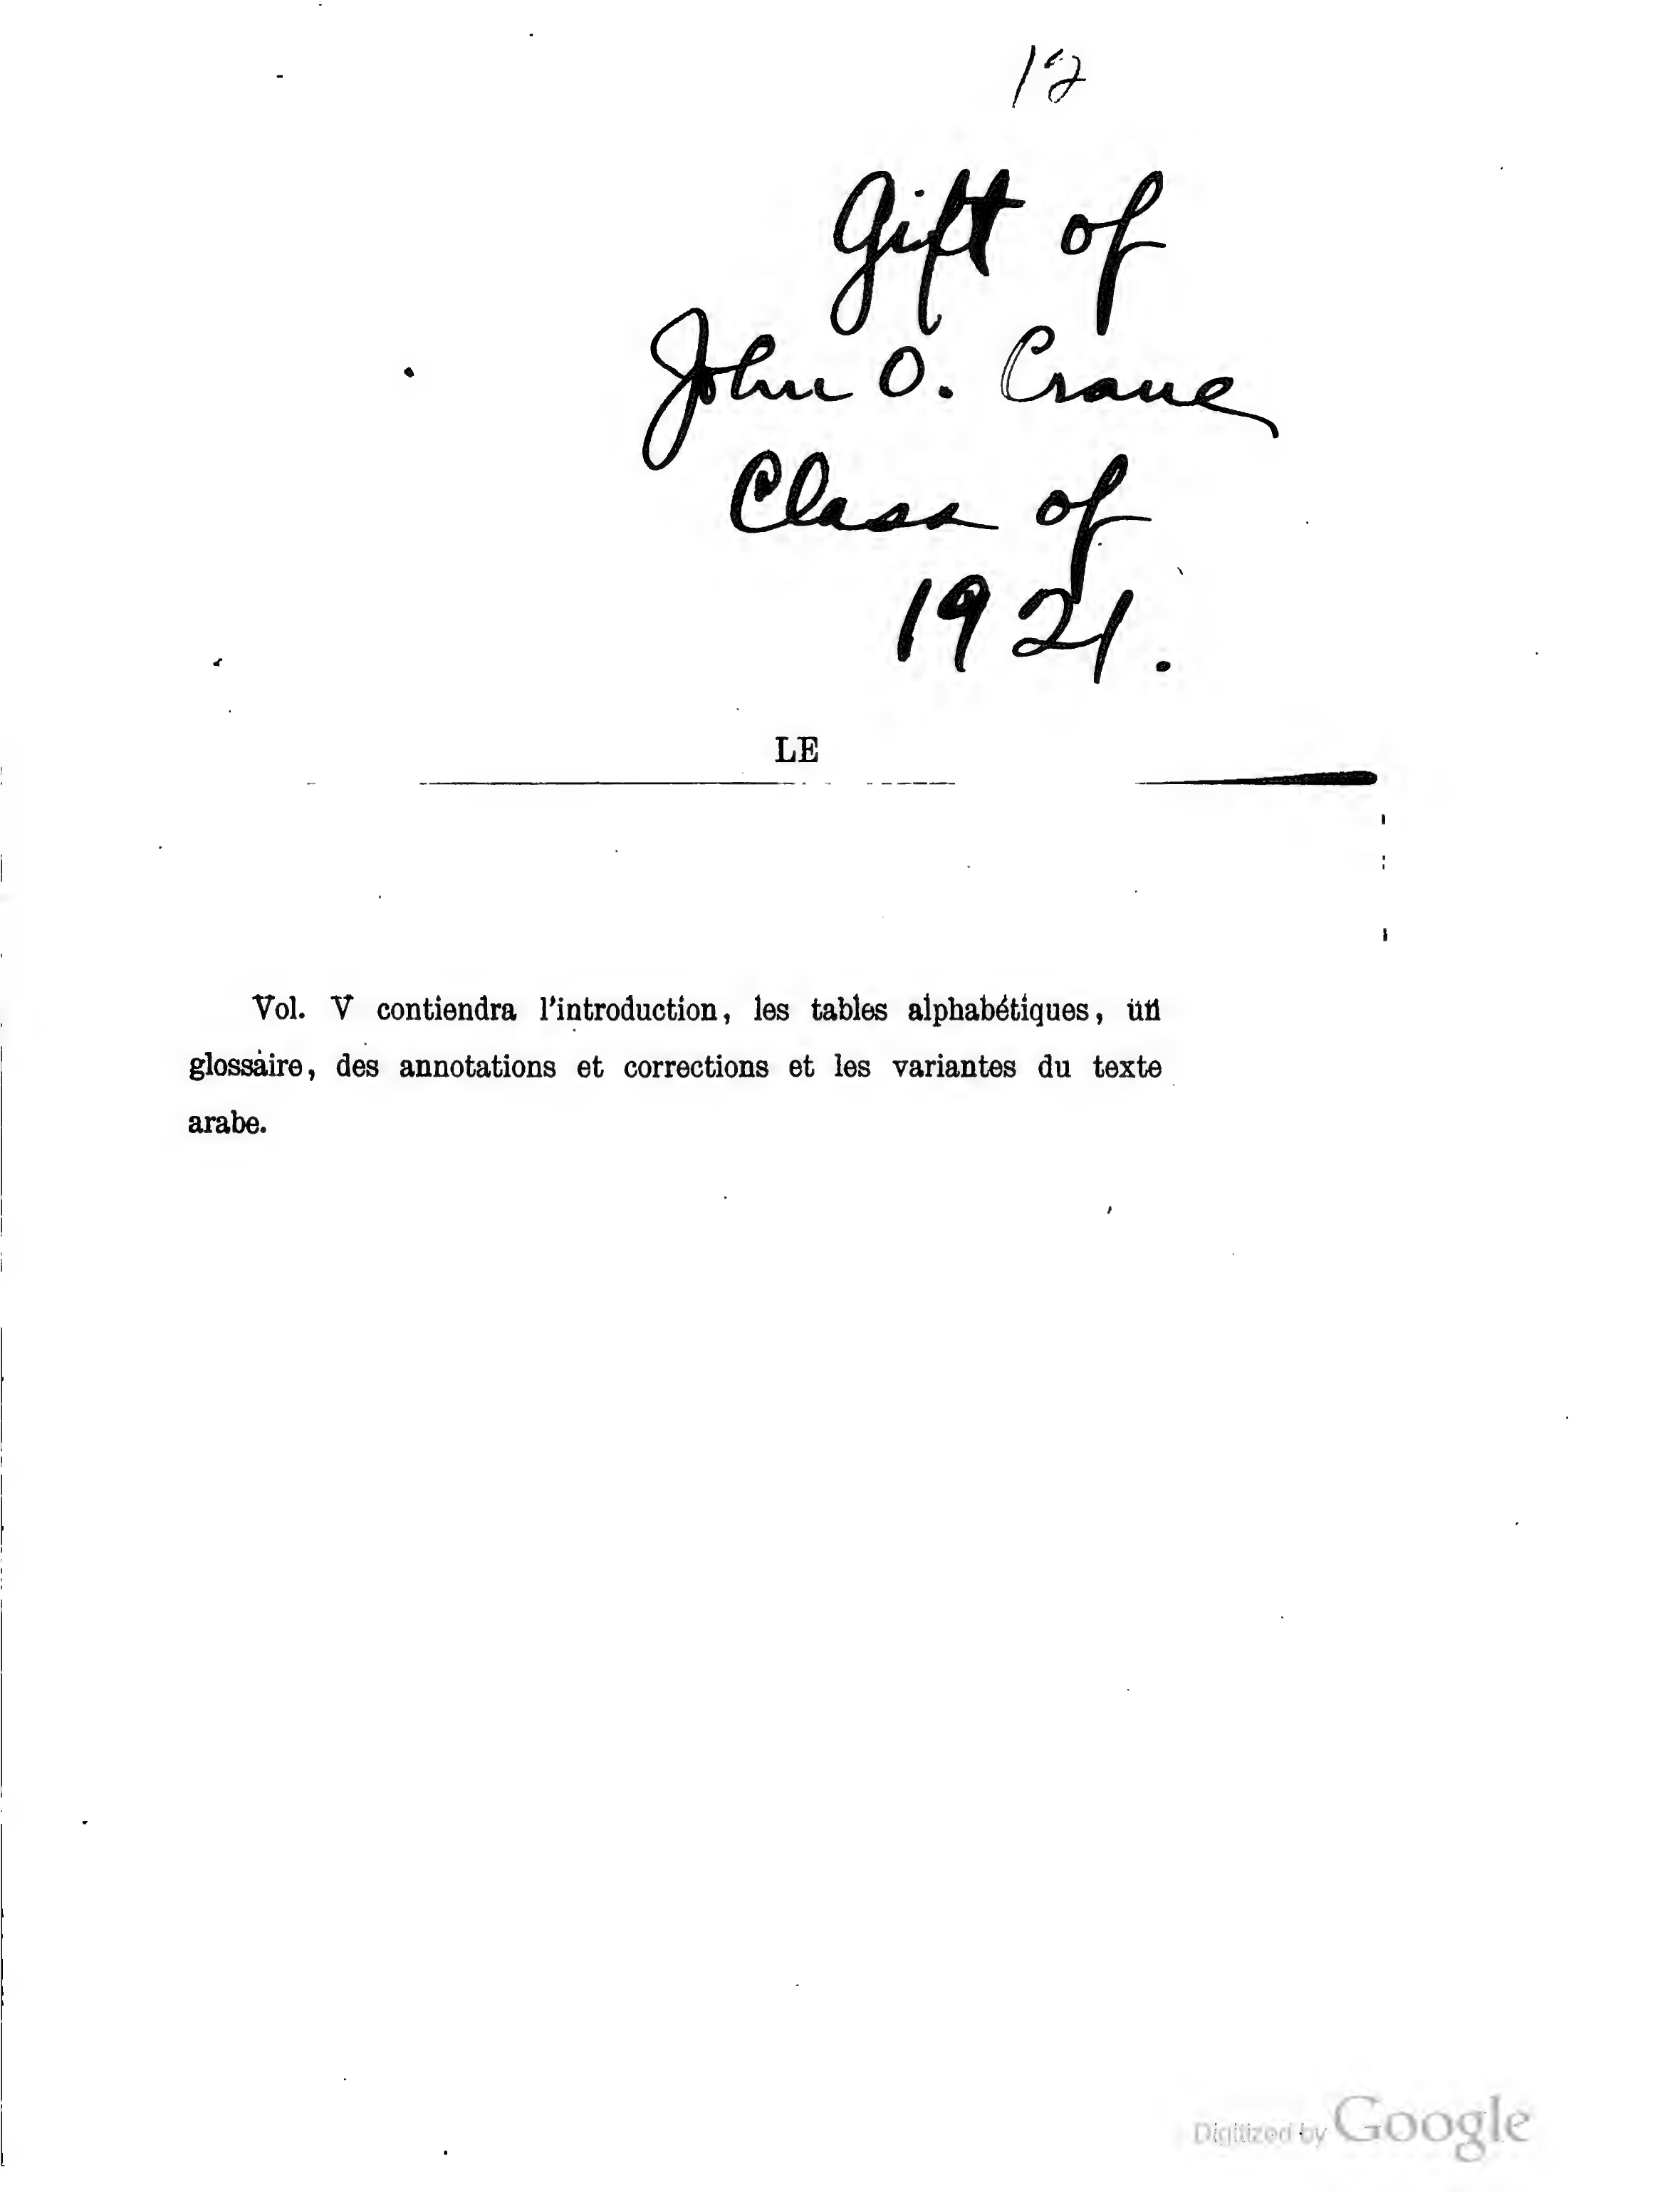 12
Gift of
John O. Crane
Class of
1921.
LE
Vol. V contiendra l'introduction, les tables alphabétiques, un
glossaire, des annotations et corrections et les variantes du texte
arabe.
Digitized by Google